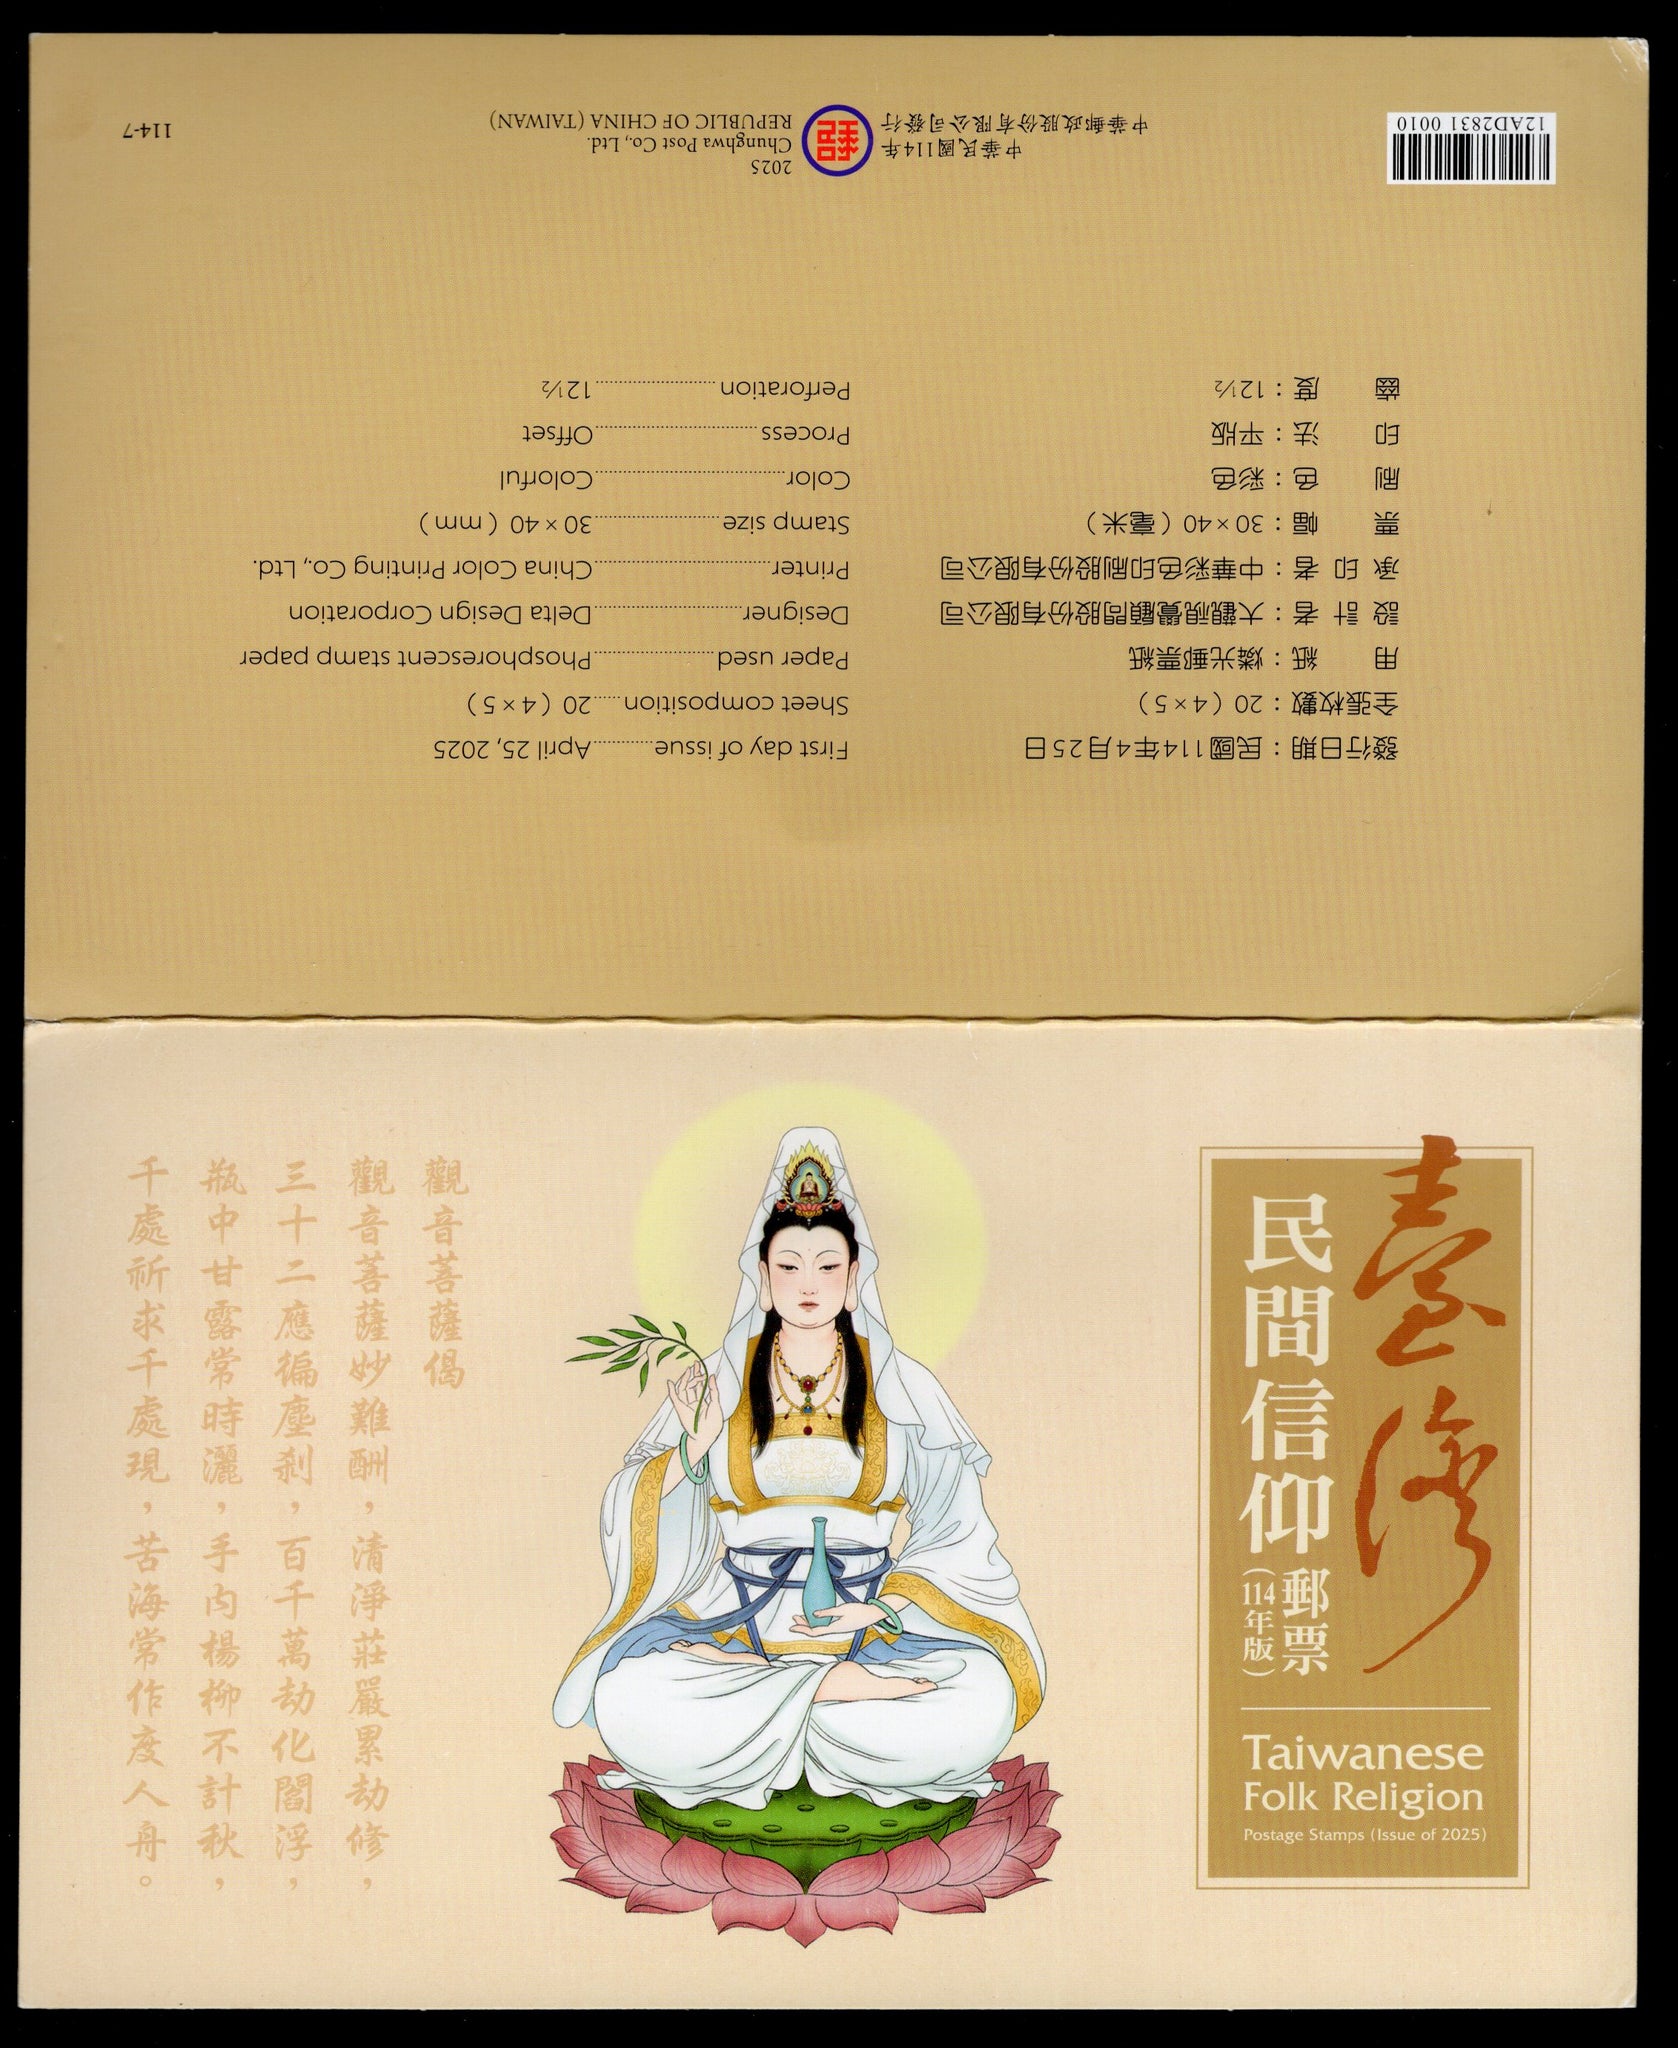 臺灣
民間信仰
郵票
(114年版)
Taiwanese
Folk Religion
Postage Stamps (Issue of 2025)
觀音菩薩偈
觀音菩薩妙難酬，清淨莊嚴累劫修，
三十二應徧塵剎，百千萬劫化閻浮，
瓶中甘露常時灑，手內楊柳不計秋，
千處祈求千處現，苦海常作度人舟。
發行日期：民國114年4月25日
全張枚數：20（4×5）
用　　紙：燐光郵票紙
設 計 者：大觀視覺顧問股份有限公司
承 印 者：中華彩色印刷股份有限公司
票　　幅：30×40（毫米）
刷　　色：彩色
印　　法：平版
齒　　度：12½
First day of issue...........April 25, 2025
Sheet composition.....20（4×5）
Paper used......................Phosphorescent stamp paper
Designer...........................Delta Design Corporation
Printer................................China Color Printing Co., Ltd.
Stamp size.......................30×40（mm）
Color...................................Colorful
Process..............................Offset
Perforation......................12½
12AD2831 0010
中華民國114年
中華郵政股份有限公司發行
郵
2025
Chunghwa Post Co., Ltd.
REPUBLIC OF CHINA (TAIWAN)
114-7